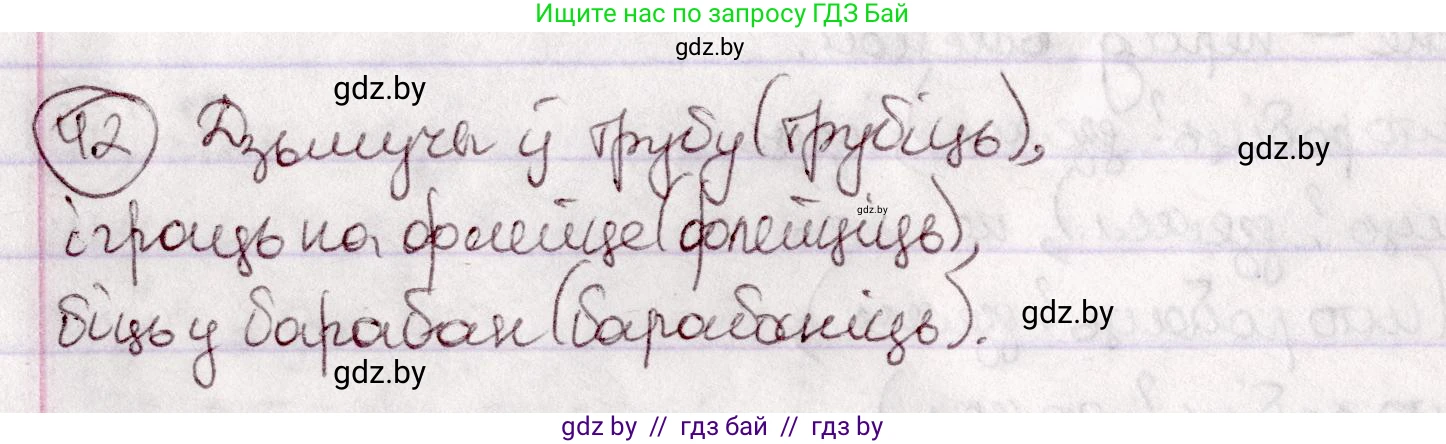 Ищите нас по запросу ГДЗ Бай
gdz.by
gdz.by
42 Дзьмучы ў трубу (трубіць),
gdz.by
іграць на флейце (флейціць),
gdz.by
біць у барабан (барабаніць).
gdz.by
gdz.by
gdz by // гдз бай // гдз by